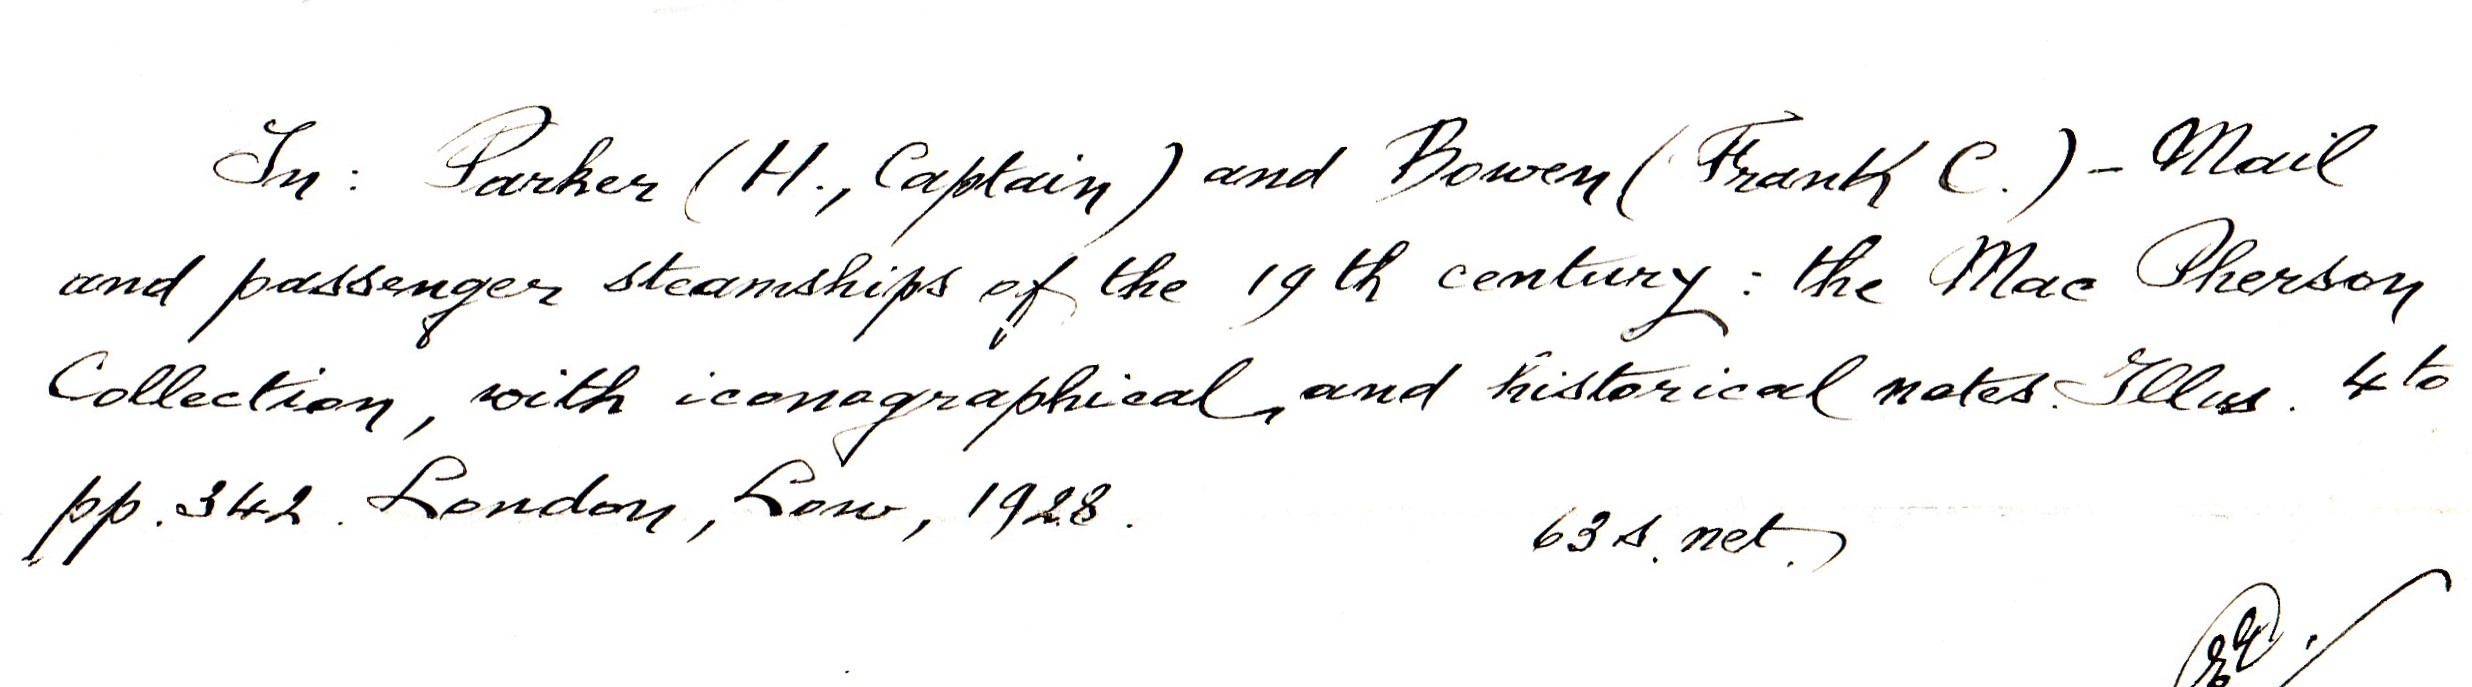 In: Parker (H., Captain) and Bowen (Frank C.) - Mail
and passenger steamships of the 19th century: the Mac Pherson
Collection, with iconographical and historical notes. Illus. 4to
pp. 342. London, Low, 1928.
63 s. net.